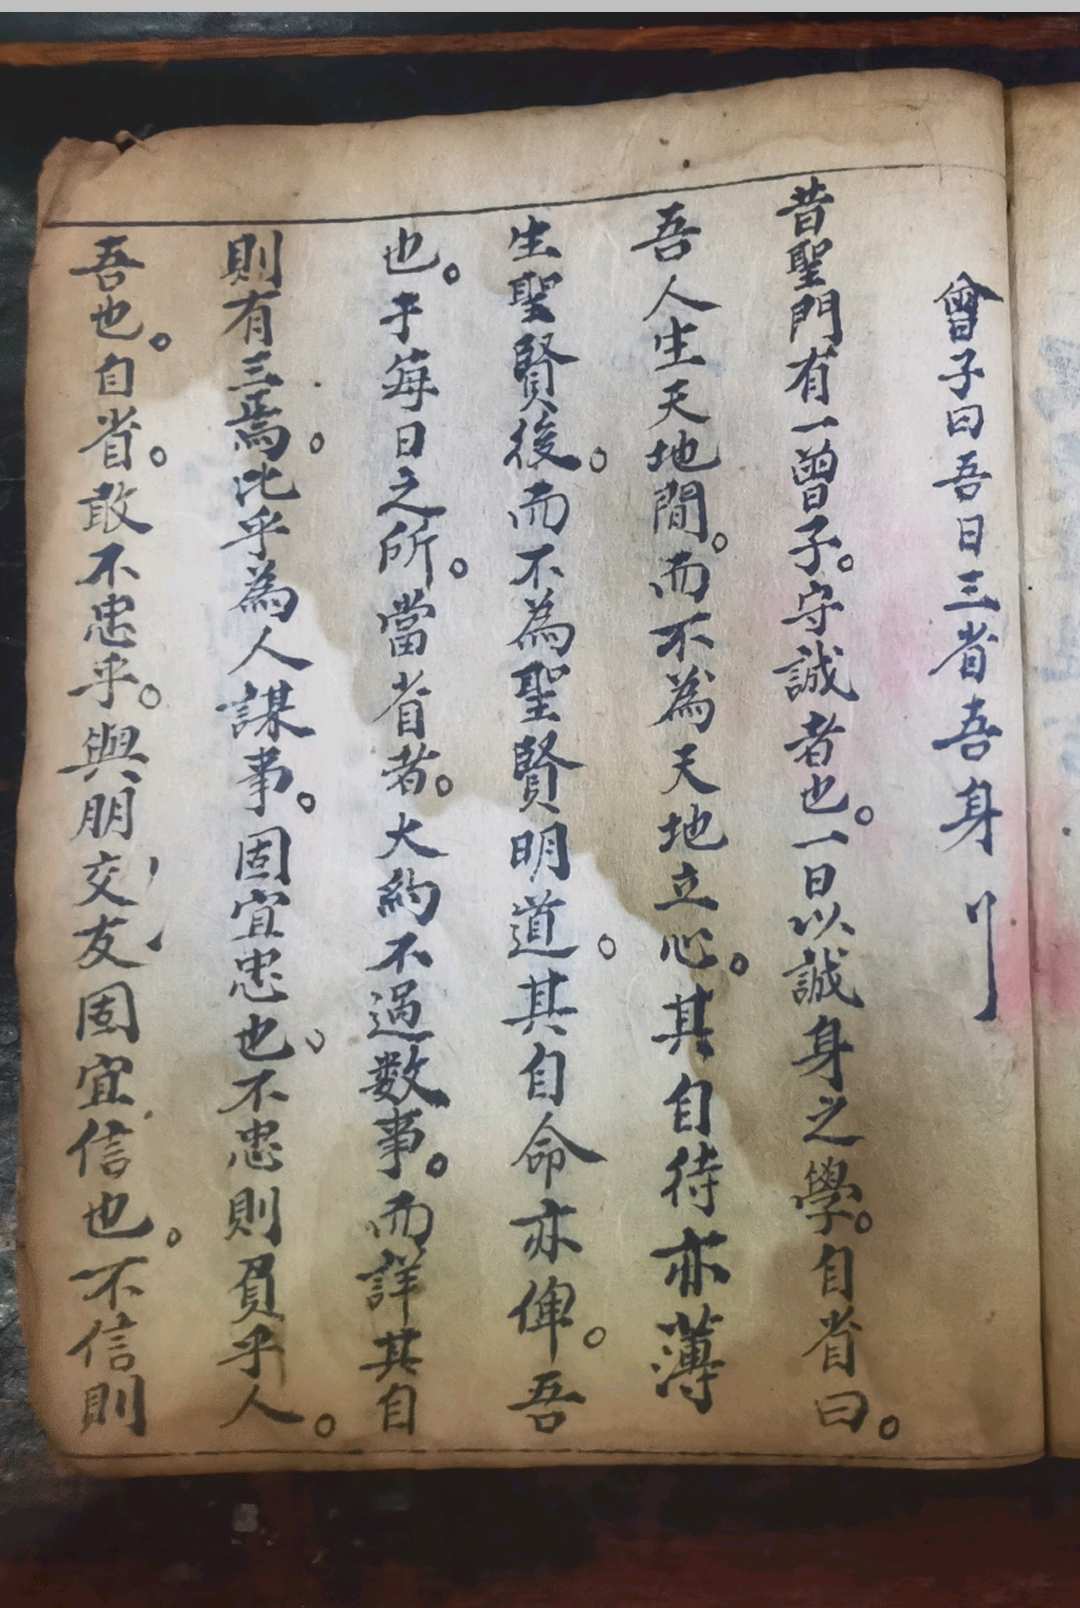 曾子曰吾日三省吾身
昔聖門有一曾子。守誠者也。一日以誠身之學。自省曰。
吾人生天地間。而不為天地立心。其自待亦薄
生聖賢後。而不為聖賢明道。其自命亦俾。吾
也。于每日之所。當省者。大約不過数事。而詳其自
則有三焉。比乎為人謀事。固宜忠也不忠則負乎人。
吾也。自省。敢不忠乎。與朋交友固宜信也。不信則